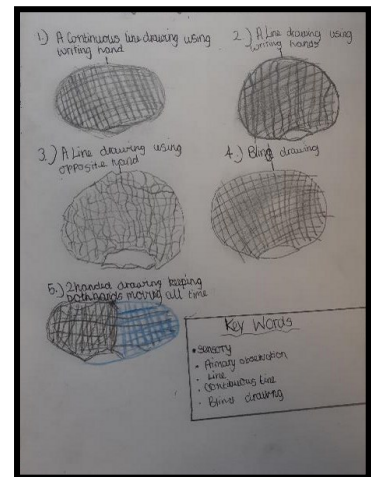 1.) A Continuous line drawing using
writing hand
2.) A Line drawing using
writing hands
3.) A Line drawing using
opposite hand
4.) Blind drawing
5.) 2 handed drawing keeping
both hands moving all time
Key Words
• Sensory
• Primary observation
• Line
• Continuous line
• Blind drawing